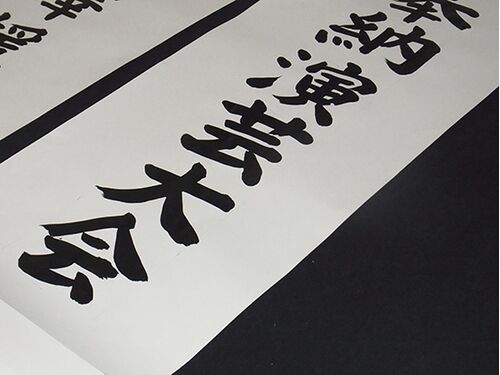 奉納演芸大会